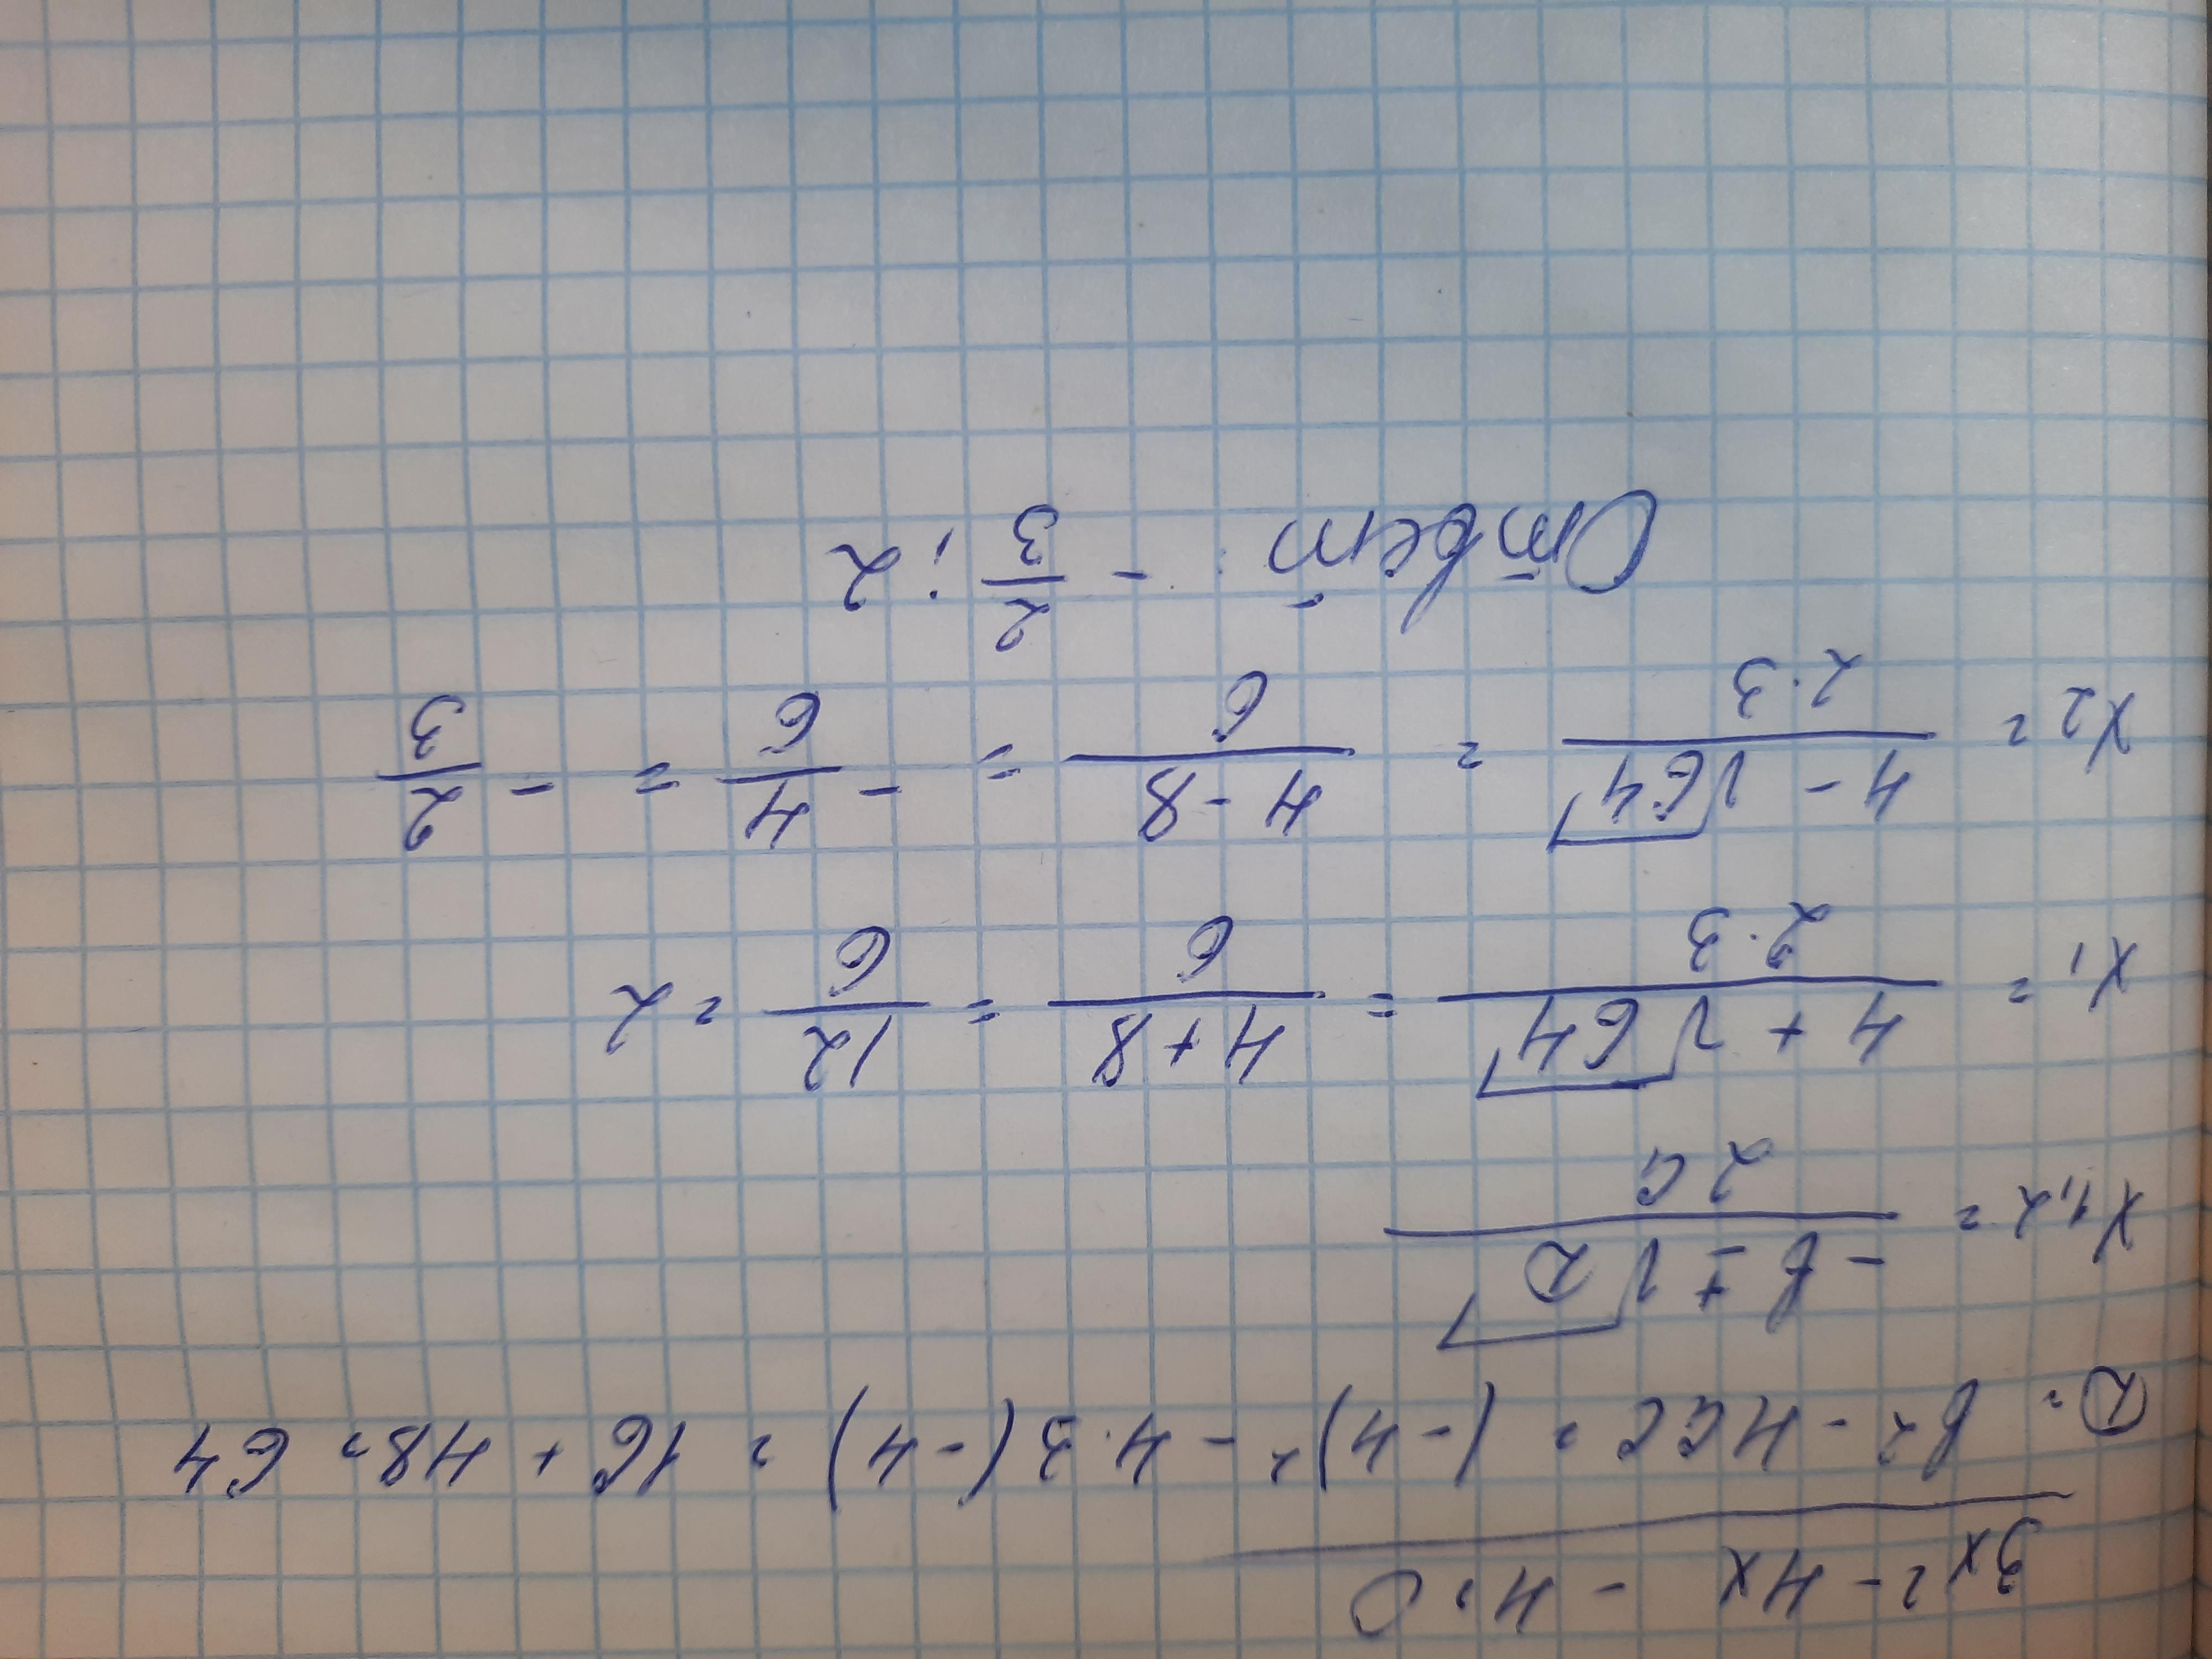 3x² - 4x - 4 = 0
D = b² - 4ac = (-4)² - 4·3(-4) = 16 + 48 = 64
x₁,₂ = (-b ± √D) / 2a
x₁ = (4 + √64) / (2·3) = (4+8) / 6 = 12/6 = 2
x₂ = (4 - √64) / (2·3) = (4-8) / 6 = -4/6 = -2/3
Ответ: -2/3; 2